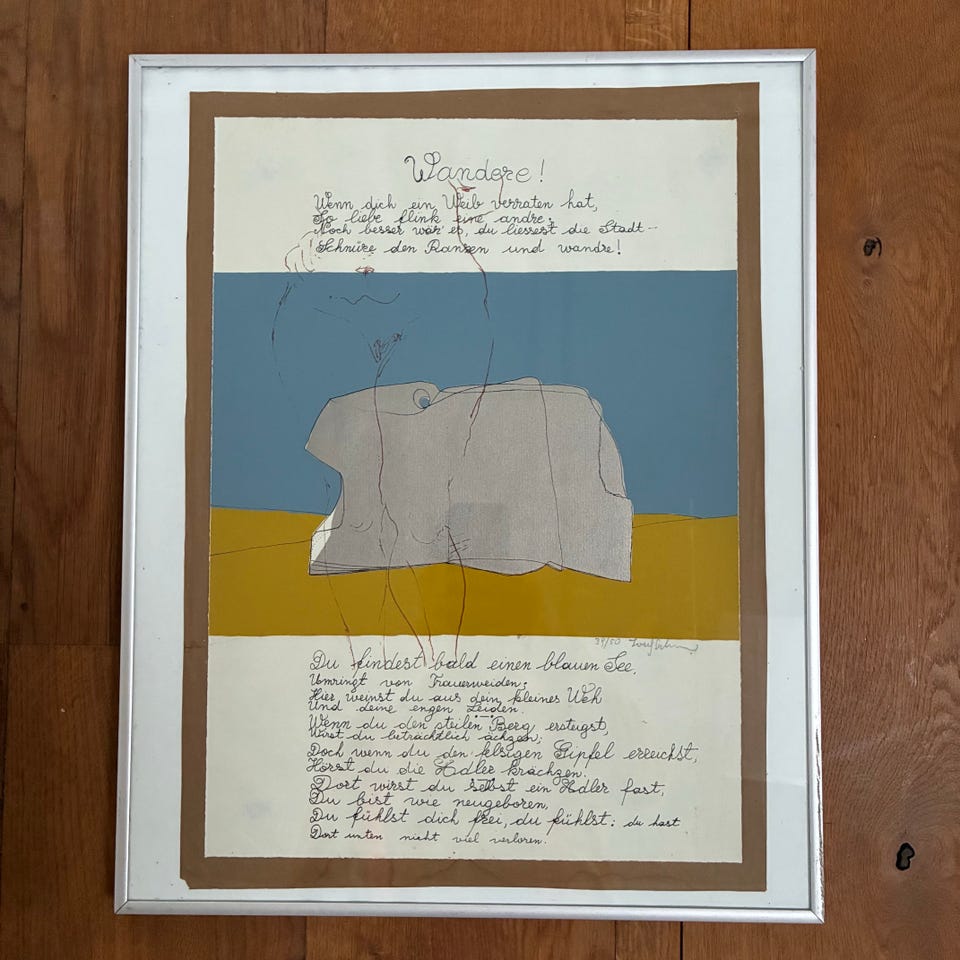 Wandere!
Wenn dich ein Weib verraten hat,
So liebe flink eine andre;
Noch besser wär es, du liessest die Stadt--
Schnüre den Ranzen und wandre!
39/50
Du findest bald einen blauen See,
Umringt von Trauerweiden;
Hier weinst du aus dein kleines Weh
Und deine engen Leiden.
Wenn du den steilen Berg ersteigst,
Wirst du beträchtlich ächzen;
Doch wenn du den felsigen Gipfel erreichst,
Hörst du die Adler krächzen.
Dort wirst du selbst ein Adler fast,
Du bist wie neugeboren,
Du fühlst dich frei, du fühlst: du hast
Dort unten nicht viel verloren.